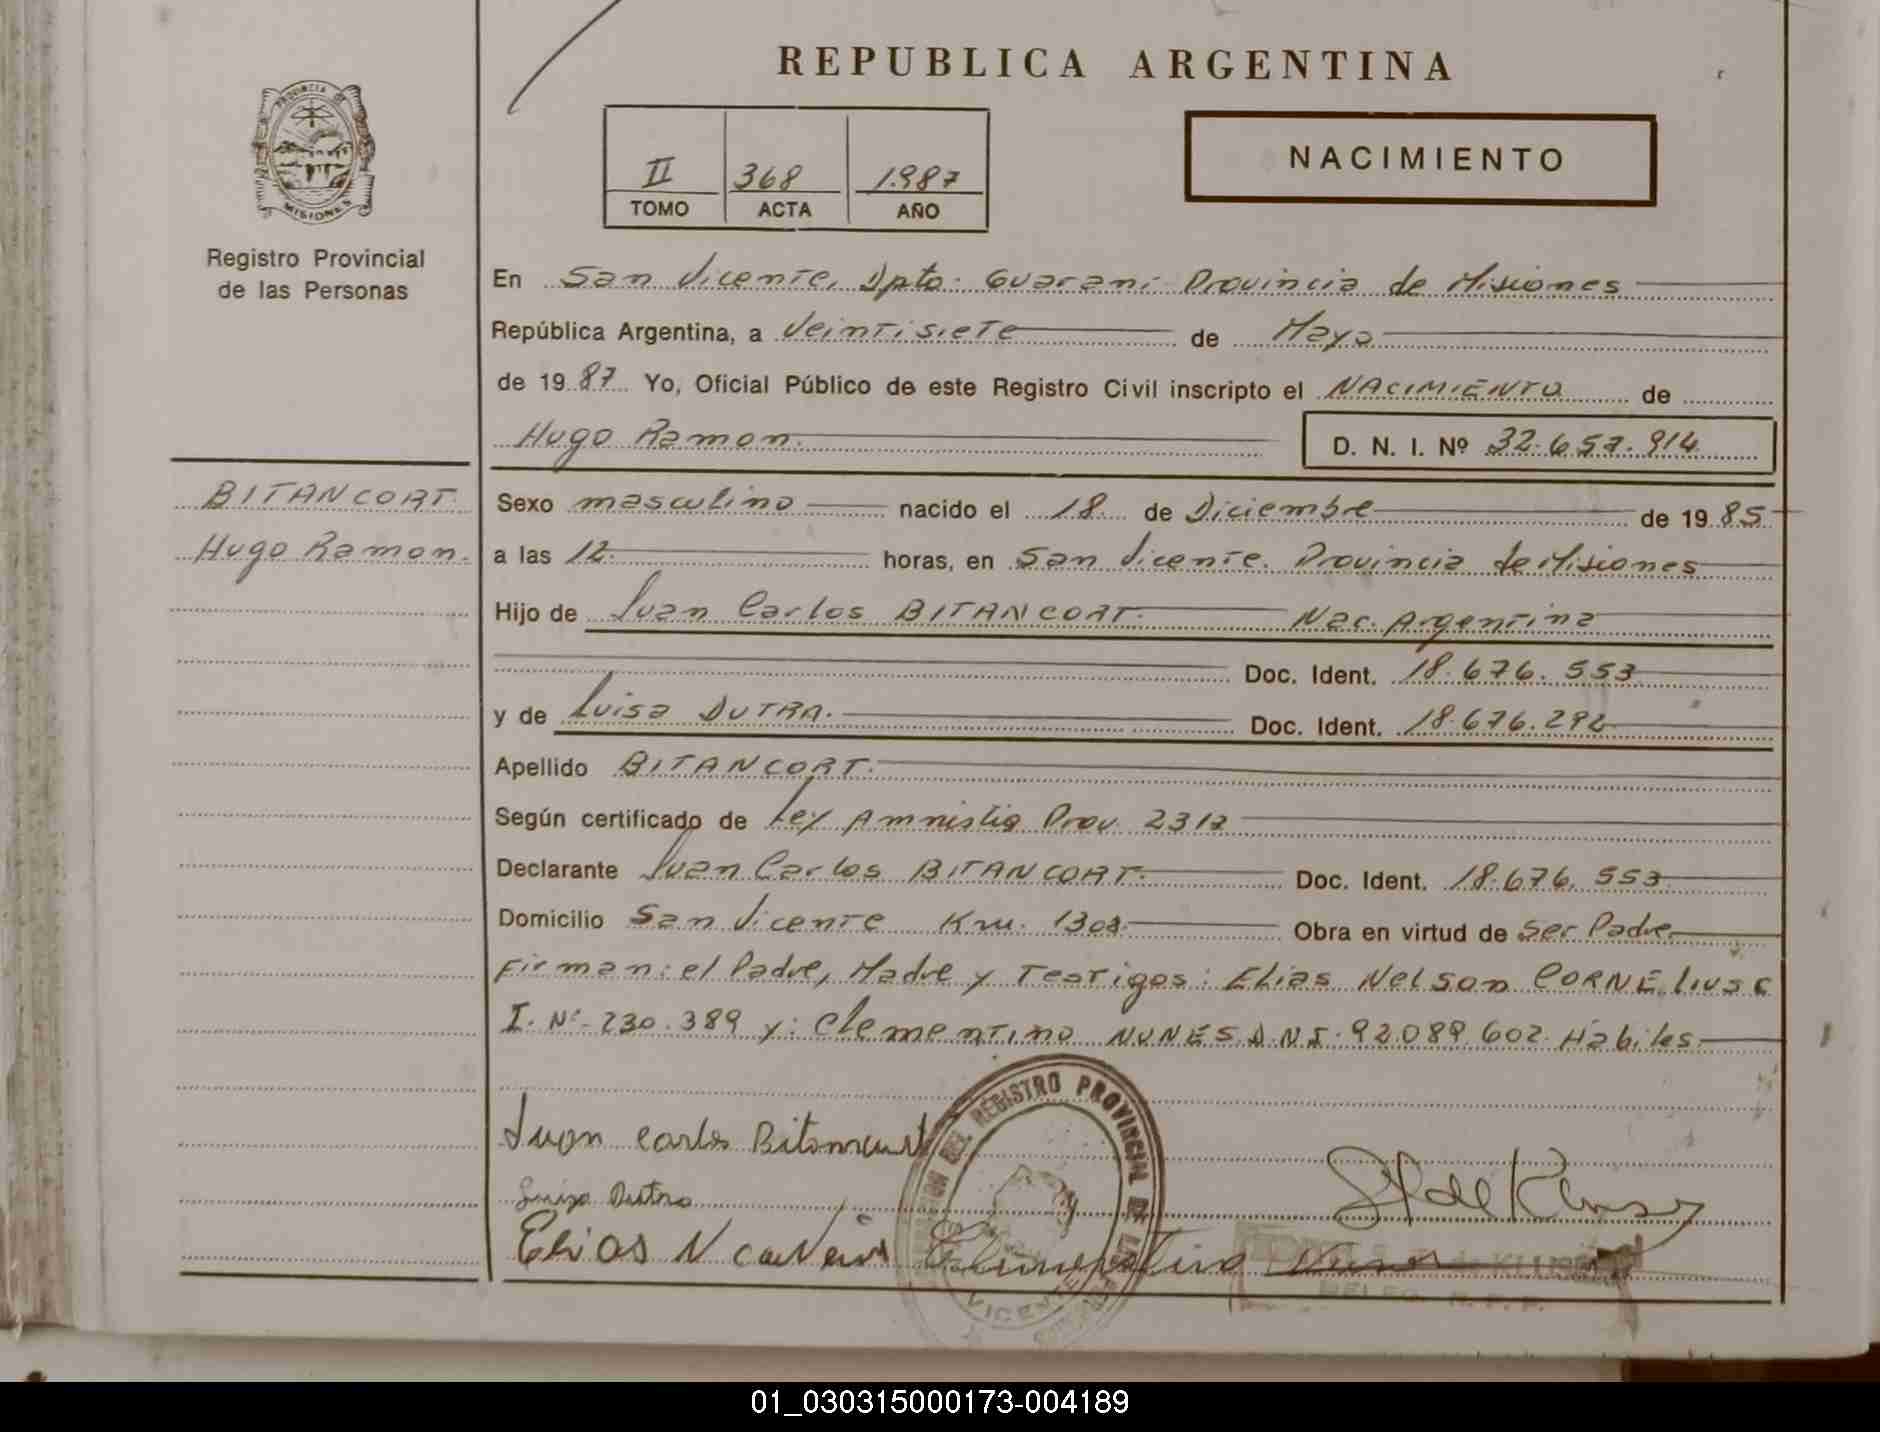 REPUBLICA ARGENTINA
PROVINCIA DE
MISIONES
Registro Provincial
de las Personas
II 368 1.987
TOMO ACTA AÑO
NACIMIENTO
En San Vicente, Dpto. Guaraní Provincia de Misiones
República Argentina, a Veintisiete de Mayo
de 1987 Yo, Oficial Público de este Registro Civil inscripto el NACIMIENTO de
Hugo Ramon. D. N. I. Nº 32.657.914
BITANCORT
Hugo Ramon.
Sexo masculino nacido el 18 de Diciembre de 1985
a las 12. horas, en San Vicente. Provincia de Misiones
Hijo de Juan Carlos BITANCORT. Nac. Argentina
Doc. Ident. 18.676.553
y de Luisa DUTRA. Doc. Ident. 18.676.292
Apellido BITANCORT.
Según certificado de Ley Amnistia Prov. 2317
Declarante Juan Carlos BITANCORT. Doc. Ident. 18.676.553
Domicilio San Vicente Km. 1308. Obra en virtud de Ser Padre
Firman: el Padre, Madre y Testigos: Elias Nelson CORNELIUS C
I. Nº 230.389 y: Clementino NUNES D.N.I. 92.089.602. Hábiles.
Juan Carlos Bitancurt
REGISTRO PROVINCIAL DE LAS
VICENTE
Elias N
Clementino Nunes
DELEG. R. P. P.
01_030315000173-004189